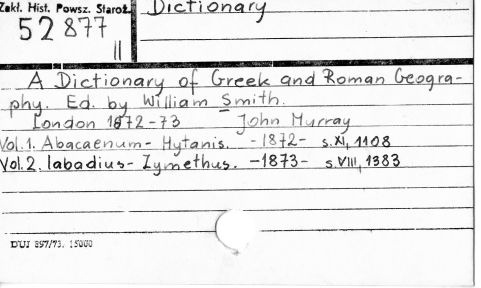 Zakł. Hist. Powsz. Staroż.
52877
II
Dictionary
A Dictionary of Greek and Roman Geogra-
phy. Ed. by William Smith.
London 1872-73 John Murray
Vol.1. Abacaenum- Hytanis. -1872- s.XI, 1108
Vol.2. Iabadius- Zymethus. -1873- s.VIII, 1383
DUJ 897/73. 15000